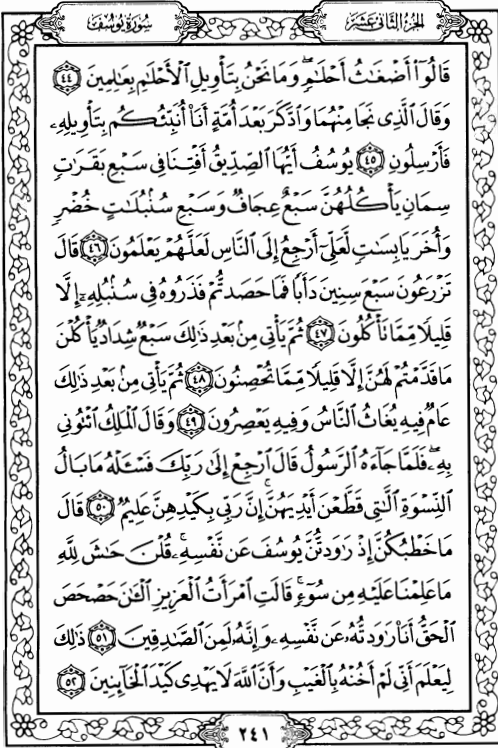 الجزء الثاني عشر
سورة يوسف
قَالُوٓا۟ أَضْغَـٰثُ أَحْلَـٰمٍ ۖ وَمَا نَحْنُ بِتَأْوِيلِ ٱلْأَحْلَـٰمِ بِعَـٰلِمِينَ ٤٤
وَقَالَ ٱلَّذِى نَجَا مِنْهُمَا وَٱدَّكَرَ بَعْدَ أُمَّةٍ أَنَا۠ أُنَبِّئُكُم بِتَأْوِيلِهِۦ
فَأَرْسِلُونِ ٤٥ يُوسُفُ أَيُّهَا ٱلصِّدِّيقُ أَفْتِنَا فِى سَبْعِ بَقَرَٰتٍ
سِمَانٍ يَأْكُلُهُنَّ سَبْعٌ عِجَافٌ وَسَبْعِ سُنۢبُلَـٰتٍ خُضْرٍ
وَأُخَرَ يَابِسَـٰتٍ لَّعَلِّىٓ أَرْجِعُ إِلَى ٱلنَّاسِ لَعَلَّهُمْ يَعْلَمُونَ ٤٦ قَالَ
تَزْرَعُونَ سَبْعَ سِنِينَ دَأَبًا فَمَا حَصَدتُّمْ فَذَرُوهُ فِى سُنۢبُلِهِۦٓ إِلَّا
قَلِيلًا مِّمَّا تَأْكُلُونَ ٤٧ ثُمَّ يَأْتِى مِنۢ بَعْدِ ذَٰلِكَ سَبْعٌ شِدَادٌ يَأْكُلْنَ
مَا قَدَّمْتُمْ لَهُنَّ إِلَّا قَلِيلًا مِّمَّا تُحْصِنُونَ ٤٨ ثُمَّ يَأْتِى مِنۢ بَعْدِ ذَٰلِكَ
عَامٌ فِيهِ يُغَاثُ ٱلنَّاسُ وَفِيهِ يَعْصِرُونَ ٤٩ وَقَالَ ٱلْمَلِكُ ٱئْتُونِى
بِهِۦ ۖ فَلَمَّا جَآءَهُ ٱلرَّسُولُ قَالَ ٱرْجِعْ إِلَىٰ رَبِّكَ فَسْـَٔلْهُ مَا بَالُ
ٱلنِّسْوَةِ ٱلَّـٰتِى قَطَّعْنَ أَيْدِيَهُنَّ ۚ إِنَّ رَبِّى بِكَيْدِهِنَّ عَلِيمٌ ٥٠ قَالَ
مَا خَطْبُكُنَّ إِذْ رَٰوَدتُّنَّ يُوسُفَ عَن نَّفْسِهِۦ ۚ قُلْنَ حَـٰشَ لِلَّهِ
مَا عَلِمْنَا عَلَيْهِ مِن سُوٓءٍ ۚ قَالَتِ ٱمْرَأَتُ ٱلْعَزِيزِ ٱلْـَٔـٰنَ حَصْحَصَ
ٱلْحَقُّ أَنَا۠ رَٰوَدتُّهُۥ عَن نَّفْسِهِۦ وَإِنَّهُۥ لَمِنَ ٱلصَّـٰدِقِينَ ٥١ ذَٰلِكَ
لِيَعْلَمَ أَنِّى لَمْ أَخُنْهُ بِٱلْغَيْبِ وَأَنَّ ٱللَّهَ لَا يَهْدِى كَيْدَ ٱلْخَآئِنِينَ ٥٢
٢٤١